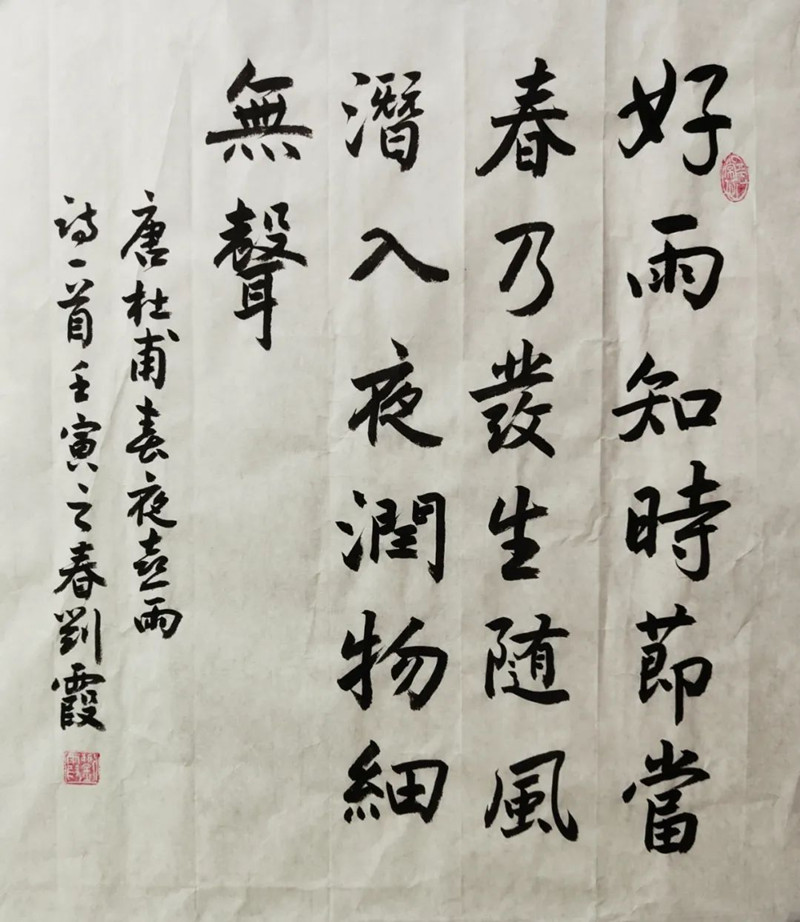 好雨知時節當
春乃發生随風
潛入夜潤物細
無聲
唐杜甫春夜喜雨
詩一首壬寅之春劉霞